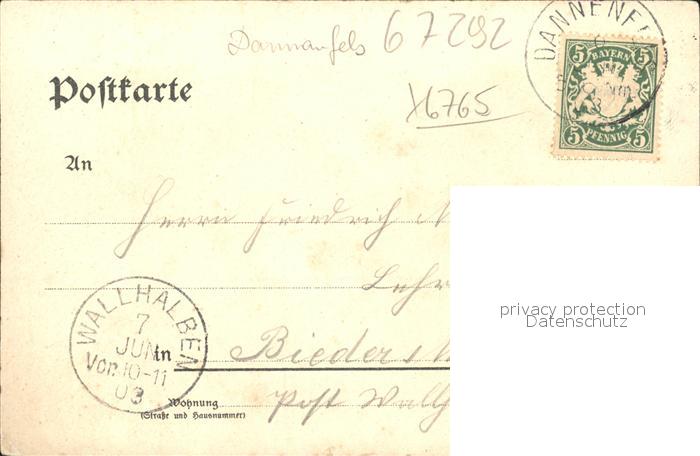 Dannenfels 67292
X6765
DANNENF
5 BAYERN 5
5 PFENNIG 5
Postkarte
An
Herrn Friedrich
Lehr
WALLHALBEN
7
JUN
Vor.10-11
03
in Bieder
Wohnung
(Straße und Hausnummer)
Post Wallh
privacy protection
Datenschutz